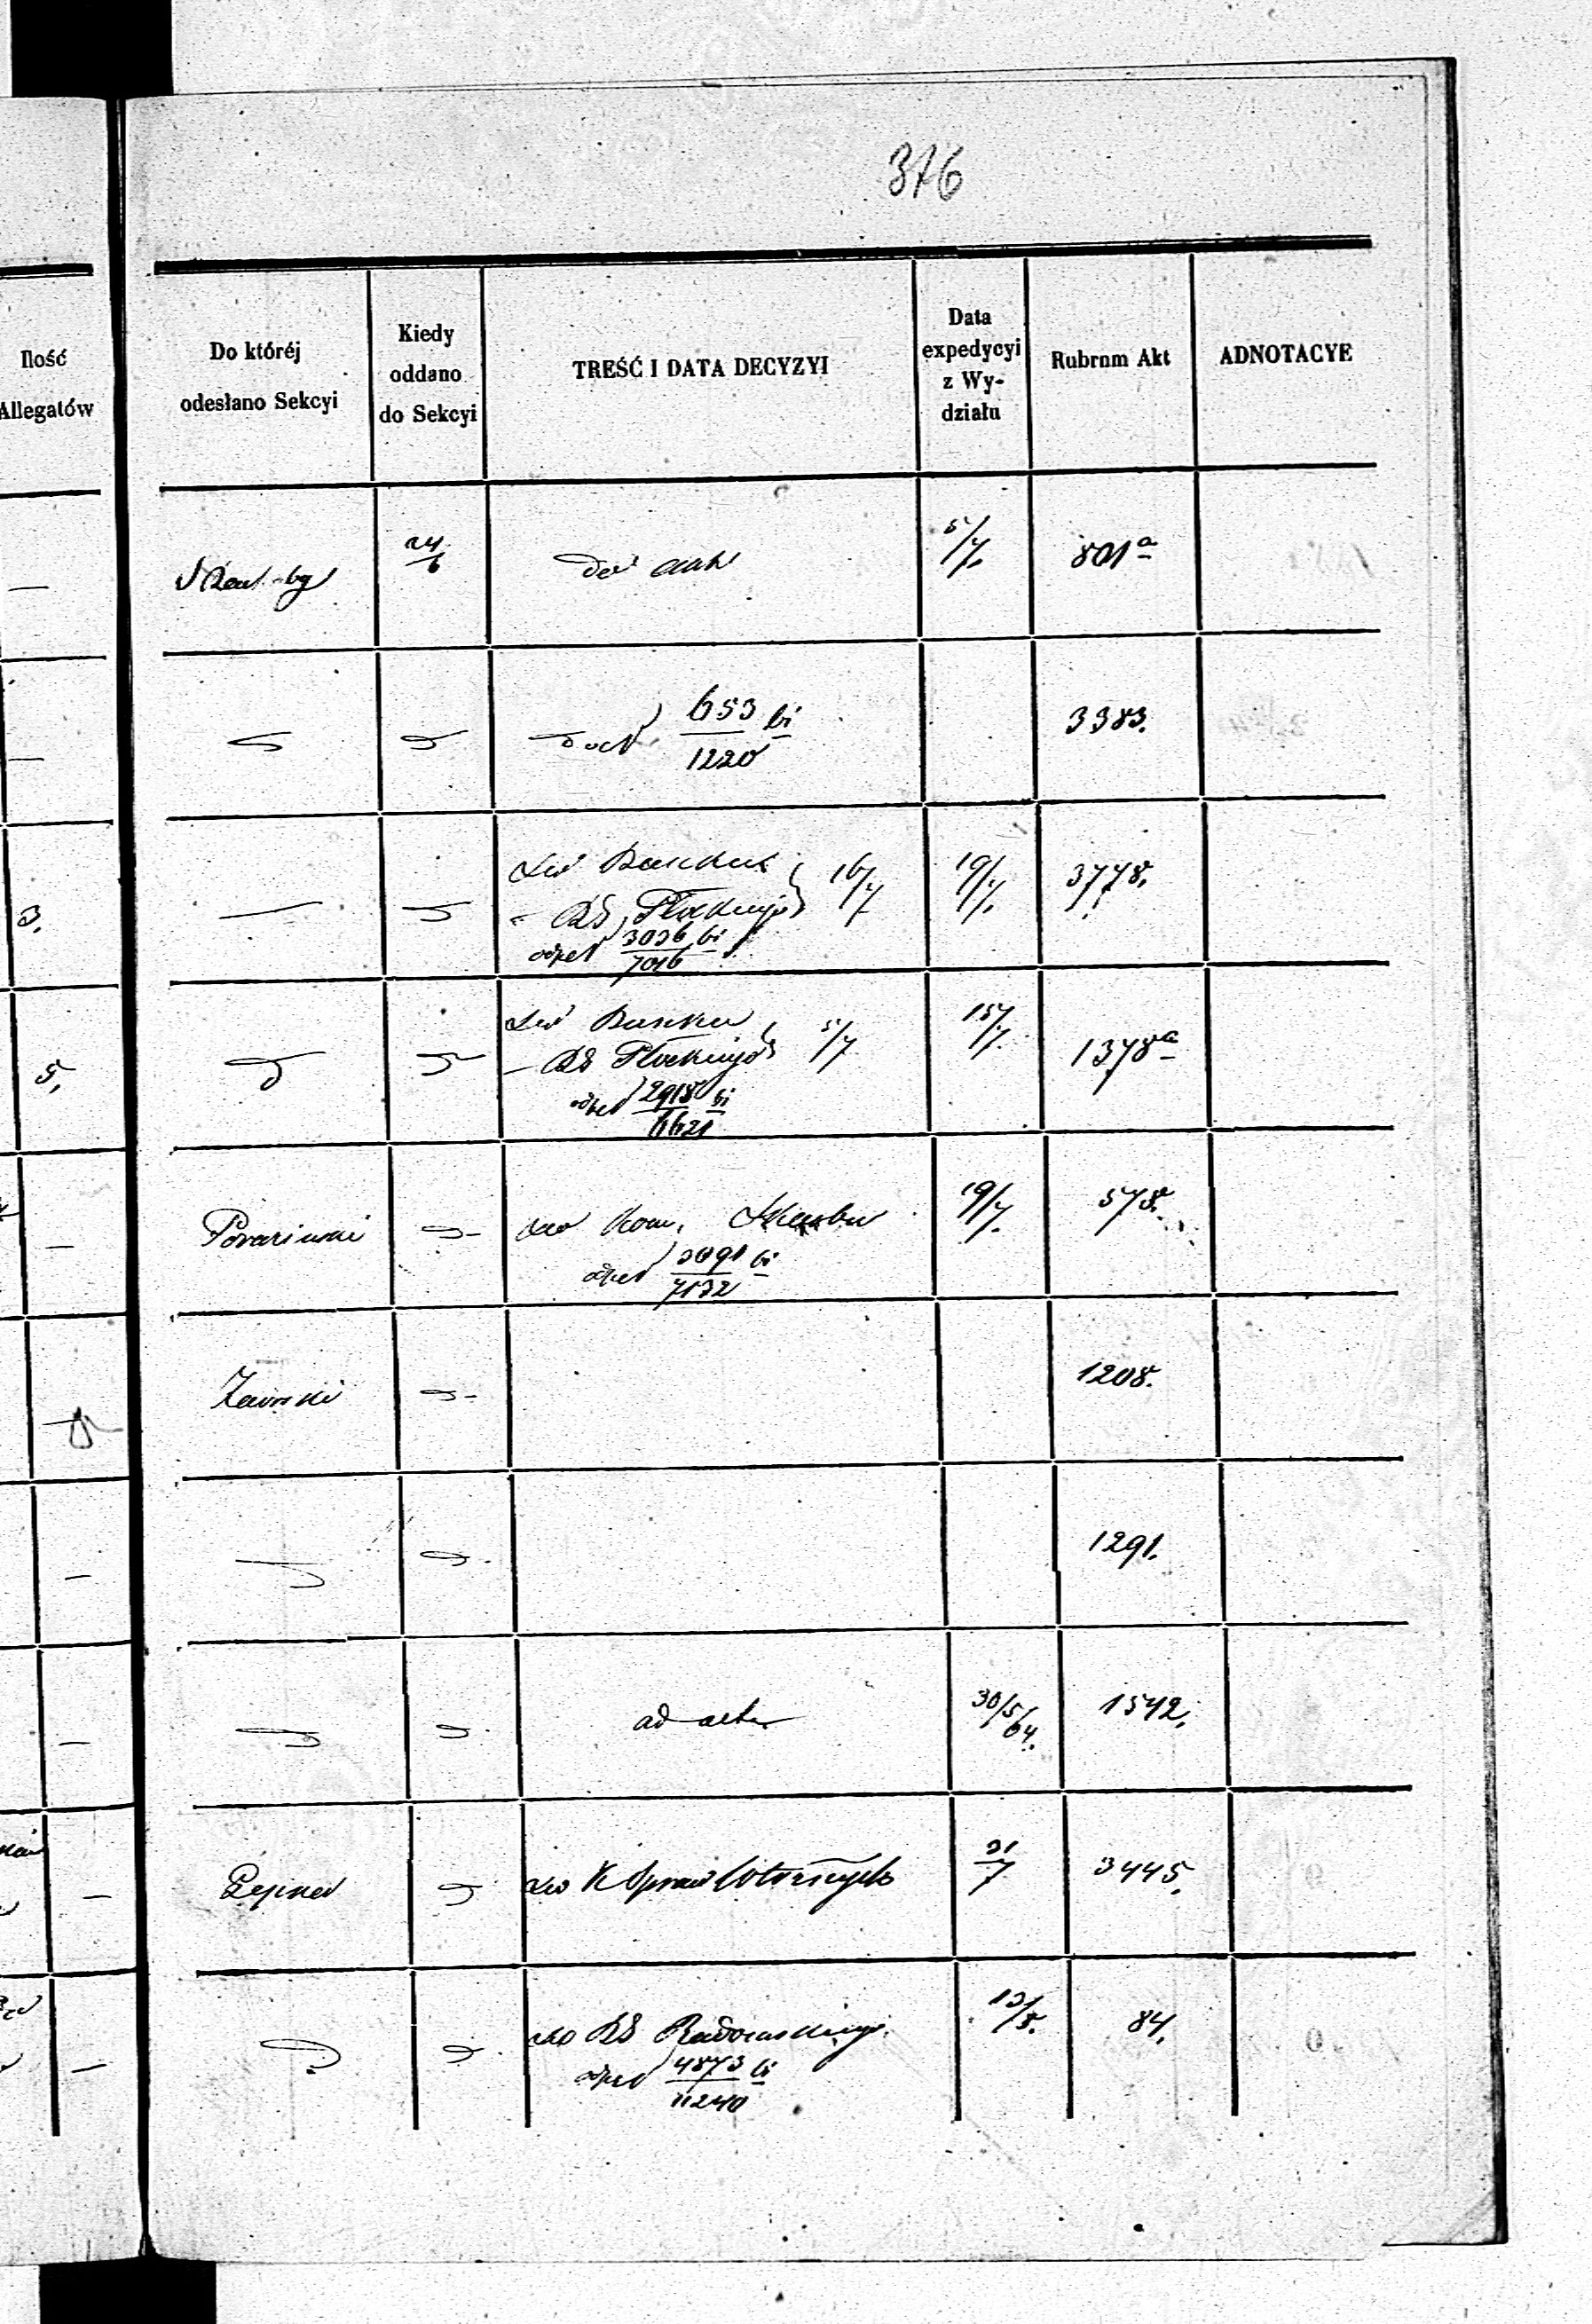 376
Ilość
Allegatów
Do któréj
odesłano Sekcyi
Kiedy
oddano
do Sekcyi
TREŚĆ I DATA DECYZYI
Data
expedycyi
z Wy-
działu
Rubrnm Akt
ADNOTACYE
24/6
do akt
5/7.
801a
653 bi
1220
3383.
3.
do Banku
RG Płockiego
16/7
odpet 3036 bi
7016
19/7.
3778.
5,
do Banku
RG Płockiego
5/7
odpet 2918 bi
6621
15/7.
1378a
do Kom. Skarbu
odpet 3091 bi
7132
19/7.
578.
Zaorski
1208.
1291.
ad acta
30/5/64.
1542.
do K Spraw Wewnętrznych
31/7
3445.
do RG Radomskiego.
odpet 4873 bi
11240
13/8.
84.